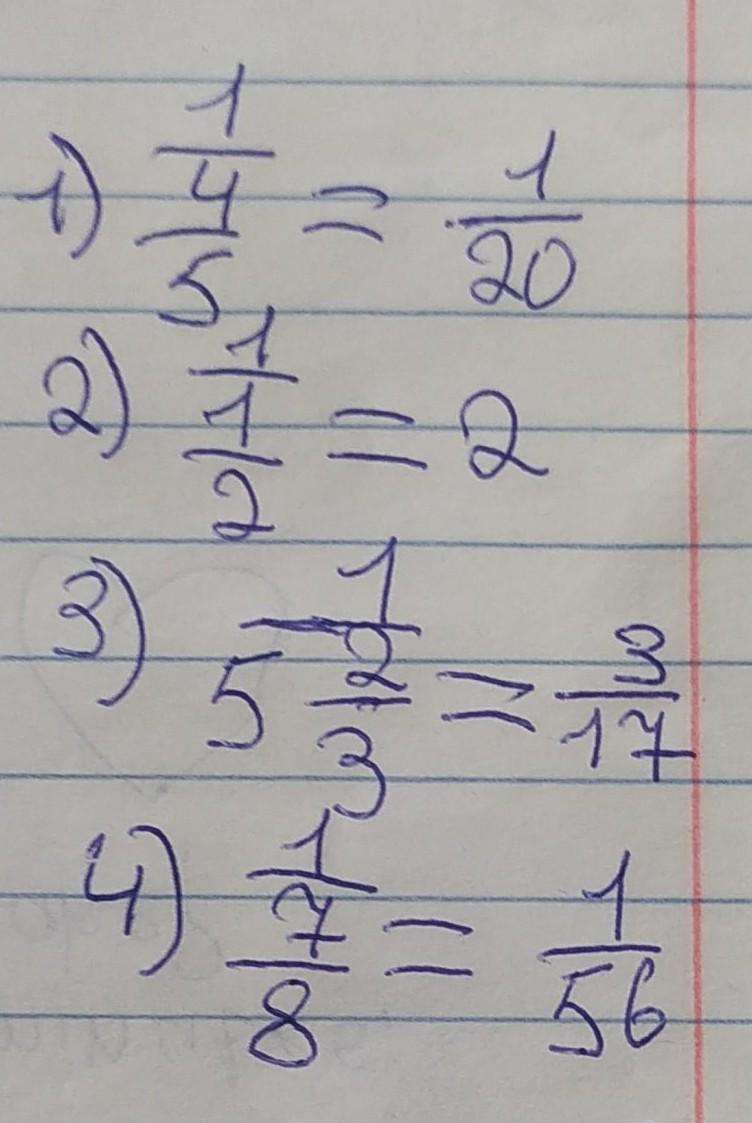 1) 1/4/5 = 1/20
2) 1/1/2 = 2
3) 1/5 2/3 = 3/17
4) 1/7/8 = 1/56